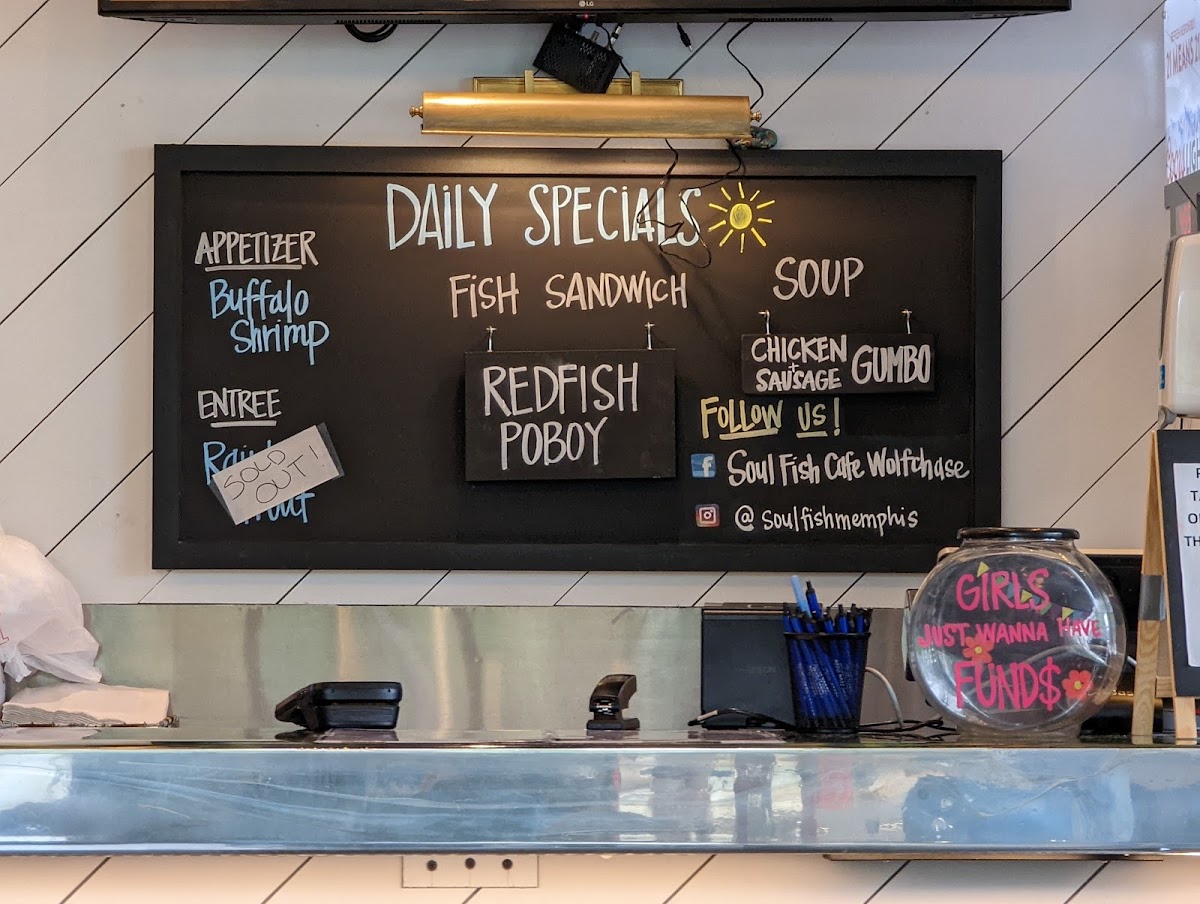 LG
DAILY SPECIALS
APPETIZER
Buffalo
Shrimp
ENTREE
SOLD
OUT!
FISH SANDWICH
REDFISH
POBOY
SOUP
CHICKEN
+
SAUSAGE
GUMBO
FOLLOW US!
f
Soul Fish Cafe Wolfchase
@ soulfishmemphis
GIRLS
JUST WANNA HAVE
FUND$
21 MEANS